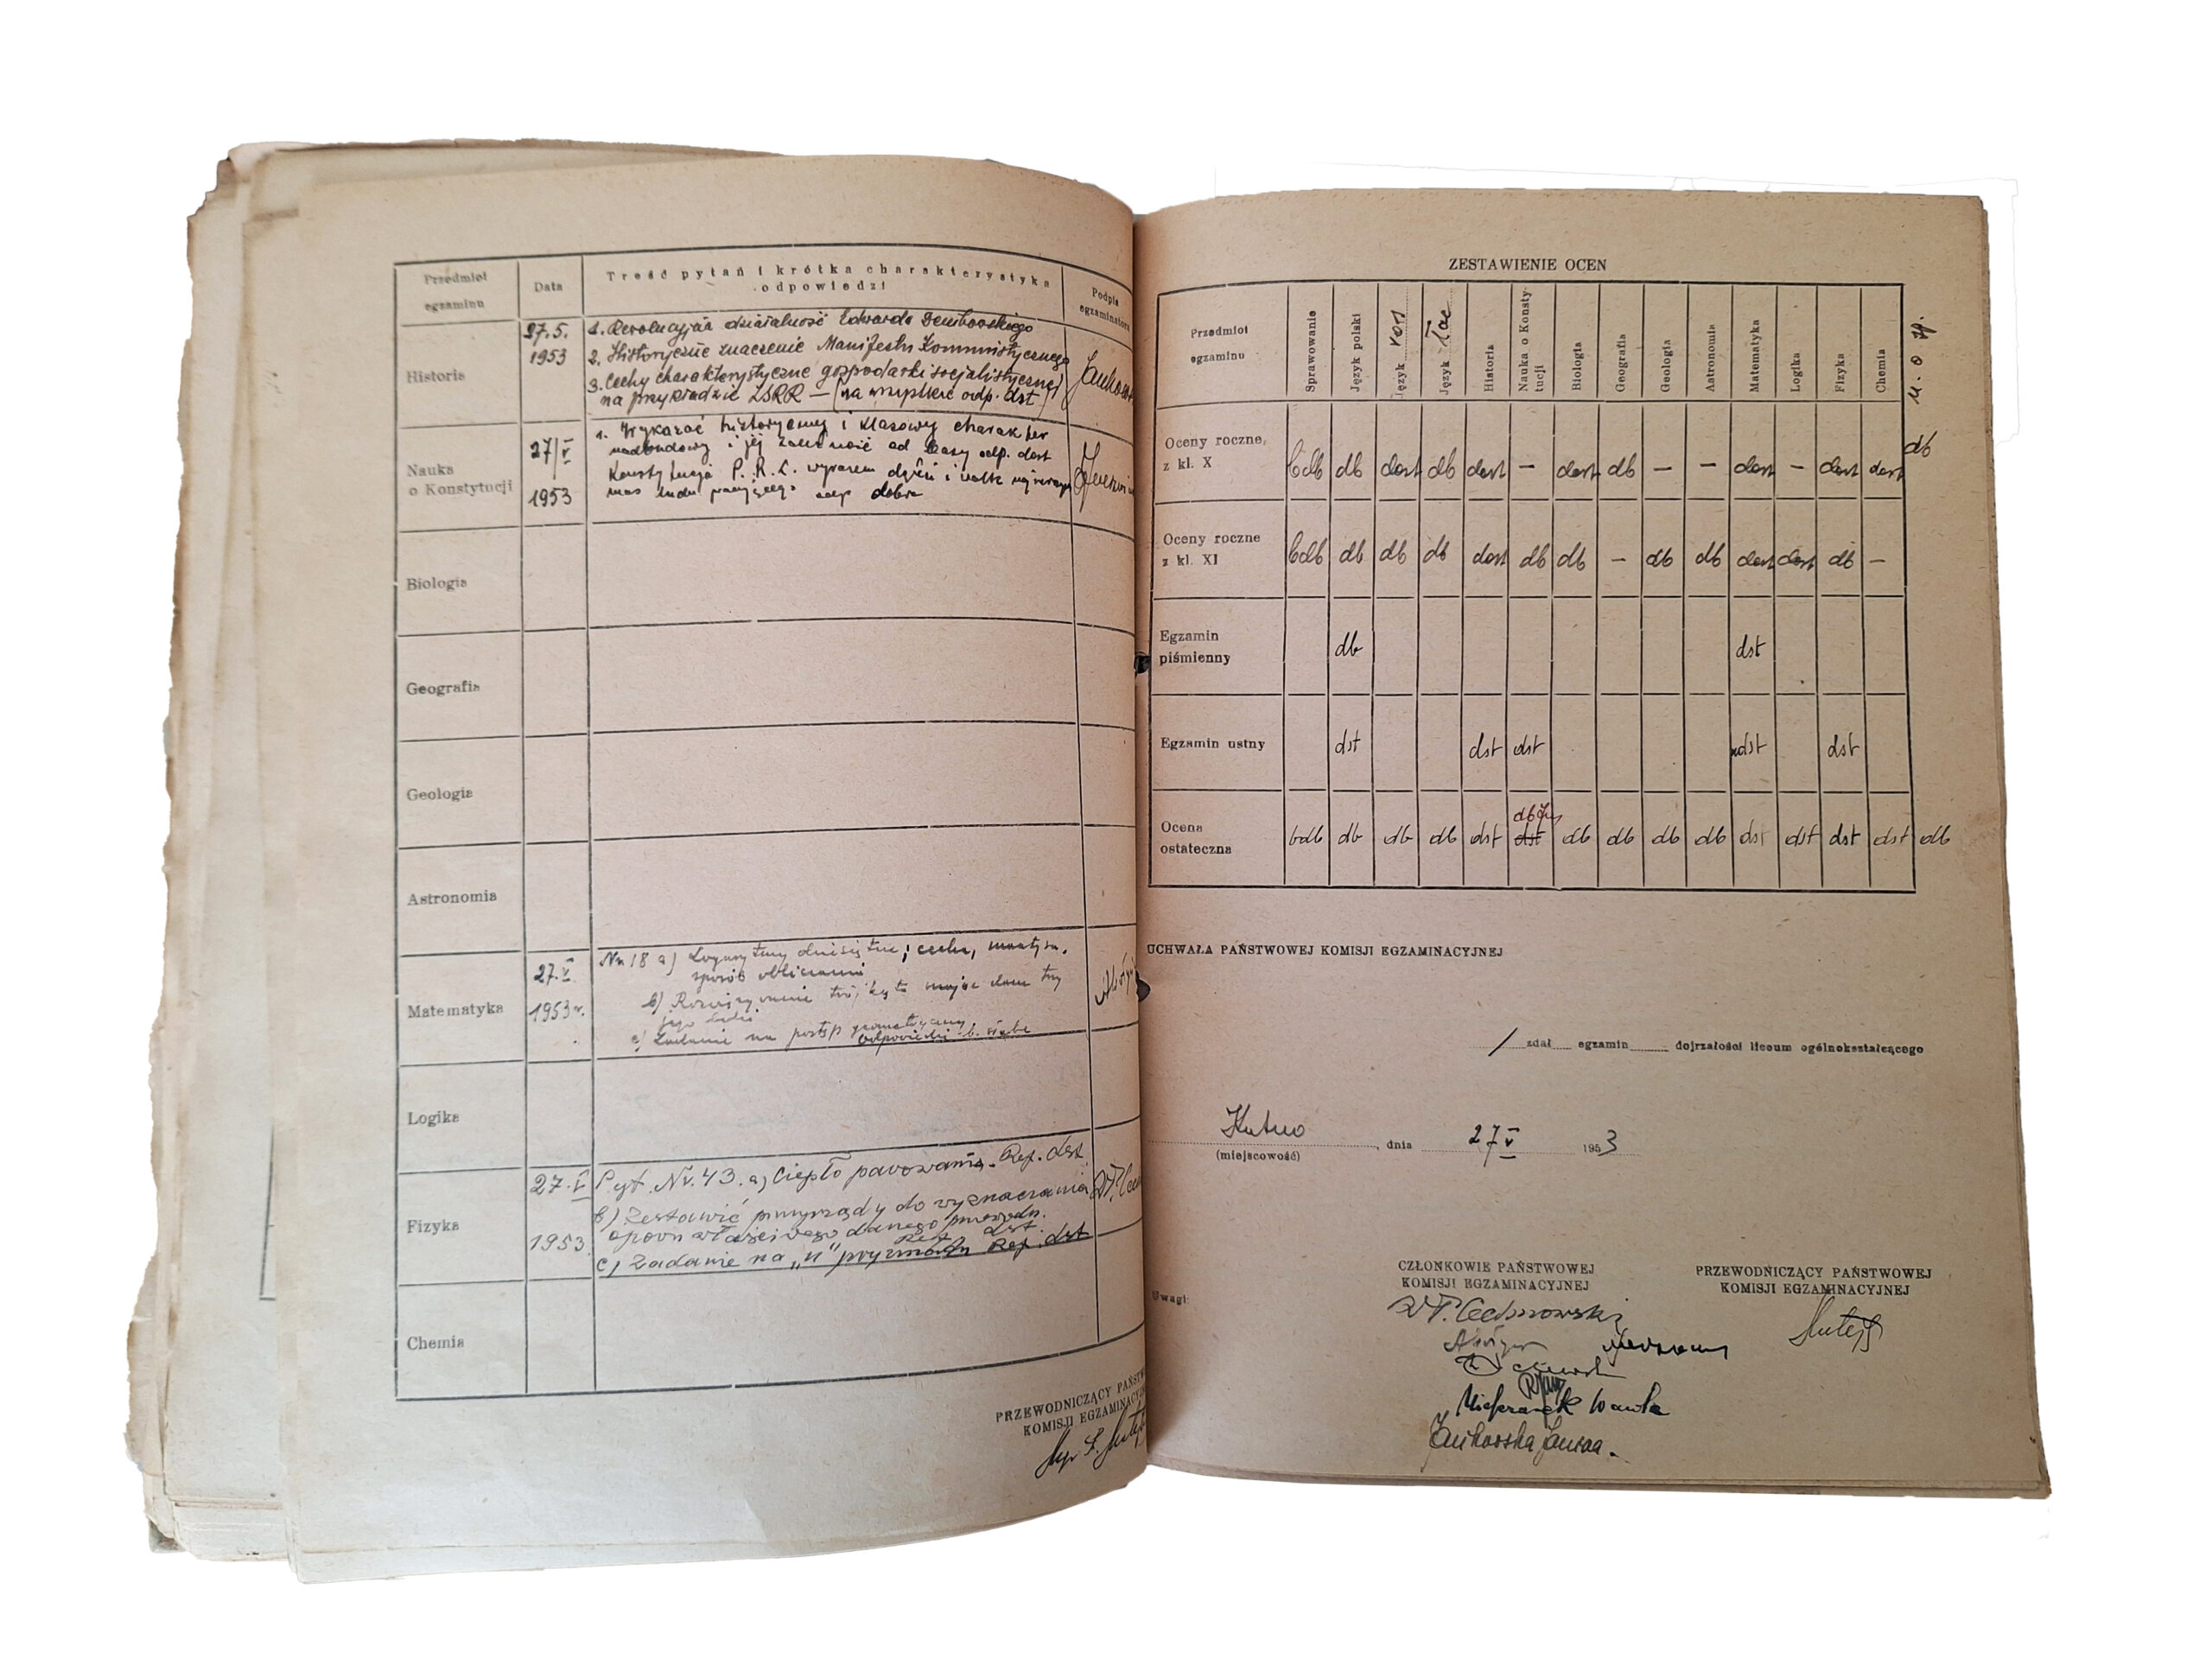 Przedmiot egzaminu
Data
Treść pytań i krótka charakterystyka
odpowiedzi
Podpis egzaminatora
Historia
27.5.
1953
1. Rewolucyjna działalność Edwarda Dembowskiego
2. Historyczne znaczenie Manifestu Komunistycznego
3. Cechy charakterystyczne gospodarki socjalistycznej
na przykładzie ZSRR — (na wszystkie odp. dst)
Nauka
o Konstytucji
27/V
1953
1. Wykazać historyczny i klasowy charakter
nadbudowy i jej zależność od bazy odp. dost
Konstytucja P.R.L. wyrazem dążeń i walk
mas ludu pracującego odp dobra
Biologia
Geografia
Geologia
Astronomia
Matematyka
27.V
1953 r.
Nr 18 a) Logarytmy dziesiętne; cecha, mantysa,
sposób obliczania
b) Rozwiązywanie trójkąta mając dane trzy
jego boki
c) Zadanie na postęp geometryczny
odpowiedzi b. słabe
Logika
Fizyka
27.V
1953.
Pyt. Nr. 43. a) Ciepło parowania. Rep. dst
b) Zestawić przyrządy do wyznaczania
oporu właściwego danego przewodn.
Rep. dst.
c) Zadanie na „n" pryzmatu Rep. dst
Chemia
PRZEWODNICZĄCY
KOMISJI
ZESTAWIENIE OCEN
Przedmiot egzaminu
Sprawowanie
Język polski
Język ros
Język łac
Historia
Nauka o Konstytucji
Biologia
Geografia
Geologia
Astronomia
Matematyka
Logika
Fizyka
Chemia
Oceny roczne z kl. X
bdb db dost db dost — dost db — — dost — dost dost db
Oceny roczne z kl. XI
bdb db db db dost db db — db db dost dost db —
Egzamin piśmienny
db dst
Egzamin ustny
dst dst dst ndst dst
db
Ocena ostateczna
bdb db db db dst dst db db db db dst dst dst dst db
UCHWAŁA PAŃSTWOWEJ KOMISJI EGZAMINACYJNEJ
zdał egzamin dojrzałości liceum ogólnokształcącego
Kutno, dnia 27 V 1953
(miejscowość)
Uwagi:
CZŁONKOWIE PAŃSTWOWEJ
KOMISJI EGZAMINACYJNEJ
PRZEWODNICZĄCY PAŃSTWOWEJ
KOMISJI EGZAMINACYJNEJ